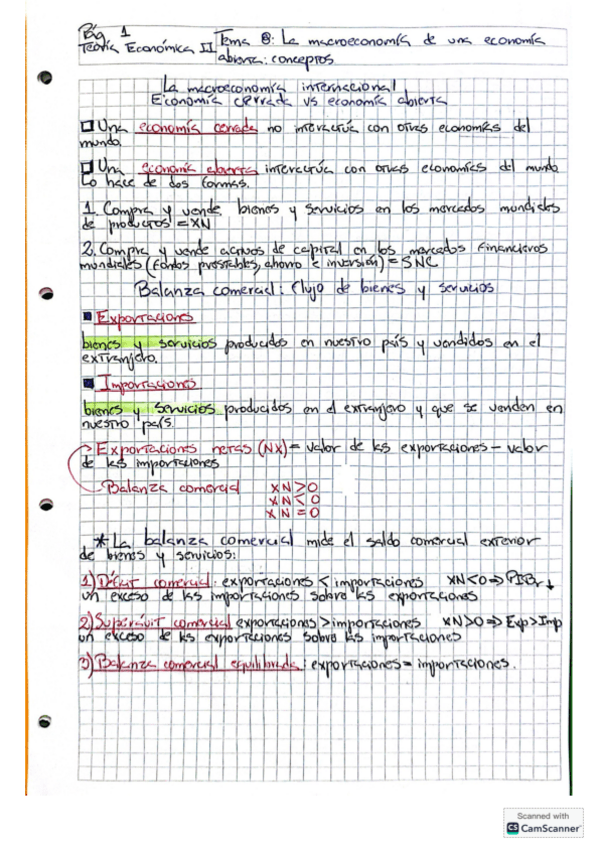 Pág 1
Teoría Económica II
Tema 8: La macroeconomía de una economía
abierta: conceptos
La macroeconomía internacional
Economía cerrada vs economía abierta
Una economía cerrada no interactúa con otras economías del
mundo.
Una economía abierta interactúa con otras economías del mundo
Lo hace de dos formas.
1. Compra y vende bienes y servicios en los mercados mundiales
de productos = XN
2. Compra y vende activos de capital en los mercados financieros
mundiales (fondos prestables, ahorro e inversión) = SNC
Balanza comercial: flujo de bienes y servicios
Exportaciones
bienes y servicios producidos en nuestro país y vendidos en el
extranjero.
Importaciones
bienes y servicios producidos en el extranjero y que se venden en
nuestro país.
Exportaciones netas (NX) = valor de las exportaciones - valor
de las importaciones
Balanza comercial XN>0
XN<0
XN=0
* La balanza comercial mide el saldo comercial exterior
de bienes y servicios:
1) Déficit comercial: exportaciones < importaciones XN<0 => PIBr ↓
un exceso de las importaciones sobre las exportaciones
2) Superávit comercial exportaciones > importaciones XN>0 => Exp>Imp
un exceso de las exportaciones sobre las importaciones
3) Balanza comercial equilibrada: exportaciones = importaciones.
Scanned with
CS CamScanner